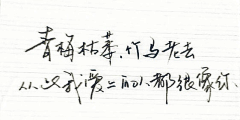 青梅枯萎,竹马老去
从此我爱上的人都很像你.